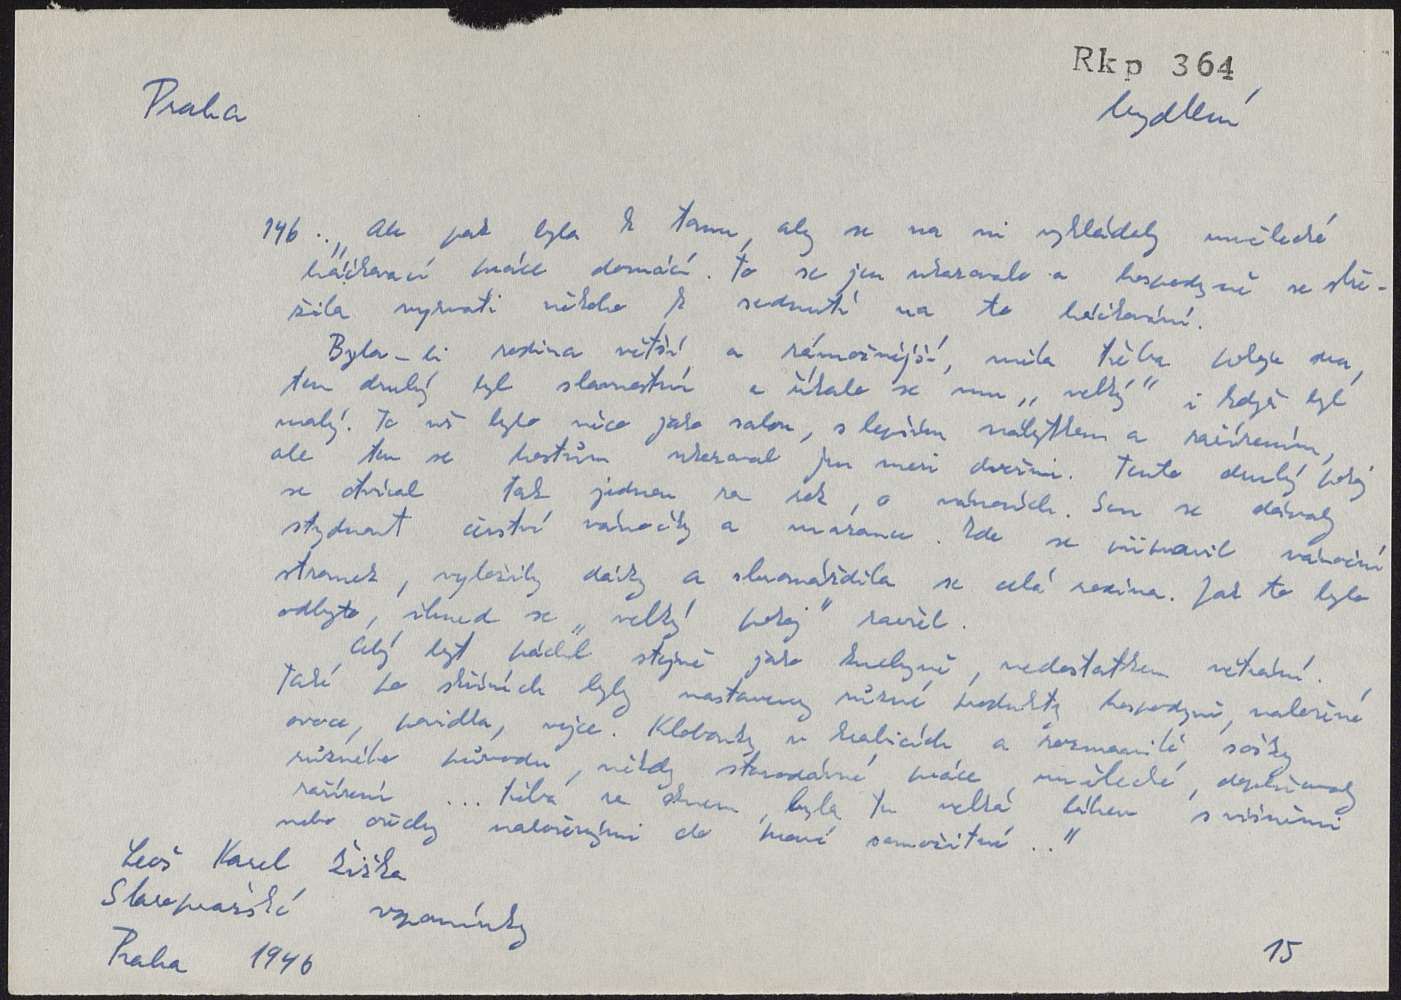 Rkp 364
Praha
bydlení
146 . „ Ale pak byla k tomu, aby se na ni vykládaly umělecké
háčkovací práce domácí. To se jen ukazovalo a hospodyně se stře-
žila vyzvati někoho k sednutí na to háčkování.
Byla-li rodina větší a zámožnější, měla třeba pokoje dva,
ten druhý byl slavnostní a říkalo se mu „velký" i když byl
malý. To už bylo něco jako salon, s lepším nábytkem a zařízením,
ale ten se hostům ukazoval jen mezi dveřmi. Tento druhý pokoj
se otvíral tak jednou za rok, o vánocích. Sem se dávaly
stydnout čerství vánočky a mazance. Zde se připravil vánoční
stromek, vyložily dárky a shromáždila se celá rodina. Jak to bylo
odbyto, ihned se „velký pokoj" zavřel.
Celý byt páchl stejně jako kuchyně, nedostatkem větrání.
Také po skříních byly nastaveny různé produkty hospodyně, naložené
ovoce, povidla, vejce. Klobouky v krabicích a rozmanité sošky
různého původu, někdy starodávné práce umělecké, doplňovaly
zařízení ... třeba za oknem byla tu velká láhev s višněmi
nebo ořechy naloženými do pravé samožitné .."
Leoš Karel Žižka
Staropražské vzpomínky
Praha 1946
15